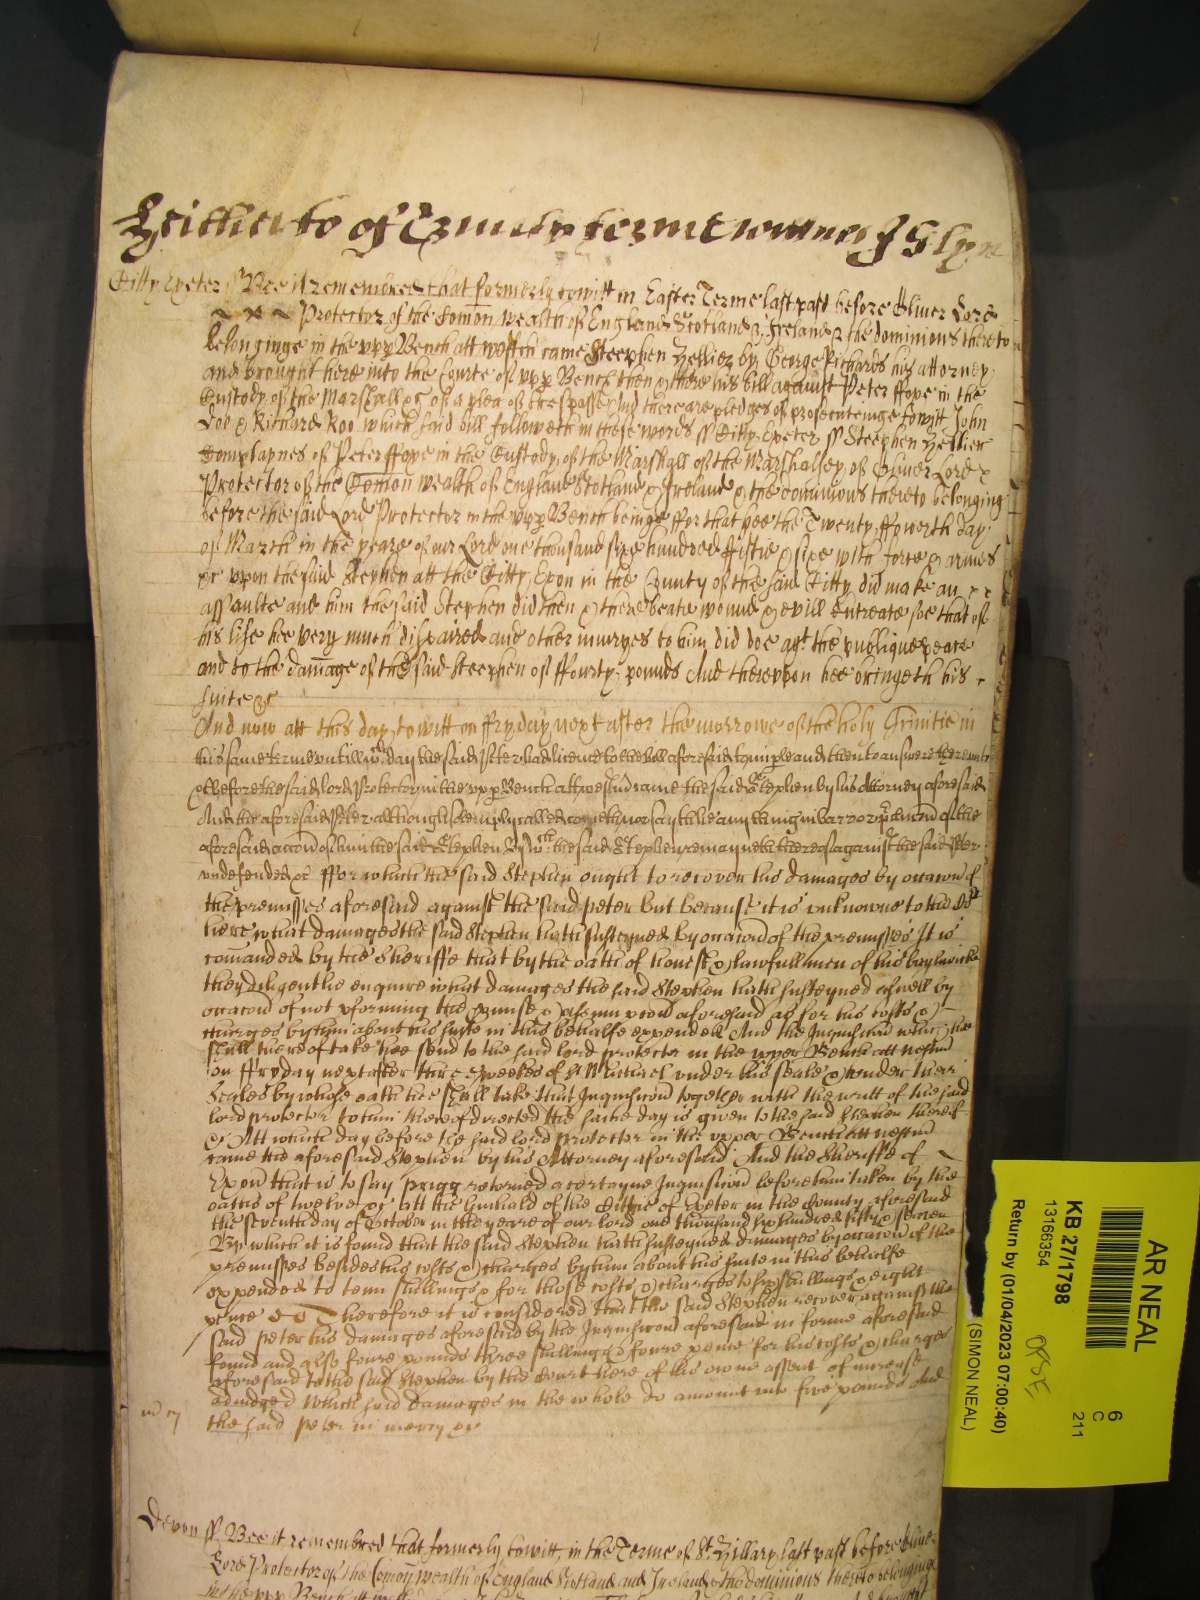 Hitherto of Trinity terme
Citty Exeter ss Bee it remembred that formerly towitt in Easter Terme last past before Oliver Lord
Protector of the Comon wealth of England Scotland & Ireland & the dominions thereto
belonginge in the upp Bench att westm came Steephen Hellier by George Richards his attorney
and brought here into the Courte of upp Bench then & there his bill against Peter ffope in the
Custody of the Marshall &c of a plea of trespasse And there are pledges of prosecuteinge towitt John
Doo & Richard Roo which said bill followeth in these words ss Citty Exeter ss Steephen Hellier
Complaynes of Peter ffope in the Custody of the Marshall of the Marshalsey of Oliver Lord
Protector of the Comon wealth of England Scotland & Ireland & the dominions thereto belonging
before the said Lord Protector in the upp Bench beinge ffor that hee the Twenty ffowerth day
of March in the yeare of our Lord one thousand sixe hundred fiftie & sixe with force & armes
&c upon the said Stephen att the Citty Exon in the County of the same Citty did make an
assaulte and him the said Stephen did then & there beate wound & evill entreate soe that of
his life hee very much dispaired and other iniuryes to him did doe agt the publique peace
and to the damage of the said Steephen of ffourty pounds And thereupon hee bringeth his
suite &c
And now att this day towitt on ffryday next after the morrowe of the holy Trinitie in
this same terme untill wch day the said Peter had licence to the bill aforesaid to imparle and then to answere thereunto
&c before the said lord Protector in the upp Bench att westm came the said Stephen by his Attorney aforesaid
And the aforesaid Peter although solemply called cometh not nor saith he any thing in barr or of the
aforesaid accon of him the said Stephen the said Stephen remayneth thereof against the said Peter
undefended &c ffor which the said Stephen ought to recover his damages by occacon of
the premisses aforesaid against the said peter but because it is unknowne to the Cort
here what damages the said Stephen hath susteyned by occacon of the premisses It is
comanded by the Sheriffe that by the oath of honest & lawfull men of his baylywicke
they diligentlie enquire what damages the said Stephen hath susteyned aswell by
occacon of not pforming the pmise & assumpcon aforesaid as for his costs &
charges by him about his suite in this behalfe expended And the Inquisicon which hee
shall thereof take hee send to the said lord protector in the upper Bench att westm
on ffryday next after three weekes of St Michael under his seale & under their
seales by whose oath hee shall take that Inquisicon together with the writt of the said
lord protector to him thereof directed the same day is given to the said Stephen thereof
&c Att which day before the said lord protector in the upper Bench att westm
came the aforesaid Stephen by his Attorney aforesaid And the Sheriffe of
Exon that is to say returned a certayne Inquisicon before him taken by the
oathes of twelve &c att the Guihald of the Cittie of Exeter in the County aforesaid
the seventh day of October in the yeare of our lord one thousand six hundred fifty & seven
By which it is found that the said Stephen hath susteyned damages by occacon of the
premisses besides his costs & charges by him about his suite in this behalfe
expended to tenn shillings & for those costs & charges to six shillings & eight
pence Therefore it is considered that the said Stephen recover against the
said peter his damages aforesaid by the Inquisicon aforesaid in forme aforesaid
found and also foure pounds three shillings & foure pence for his costs & charges
aforesaid to the said Stephen by the Court here of his owne assent of increase
adiudged Which said damages in the whole do amount unto five pounds And
the said peter in mercy &c
Devon ss Bee it remembred that formerly towitt in the Terme of St Hillary last past before Oliver
Lord Protector of the Comon wealth of England Scotland and Ireland & the dominions thereto belonging
in the upp Bench att
AR NEAL
KB 27/1798
13166354
Return by (01/04/2023 07:00:40)
(SIMON NEAL)
6
C
211